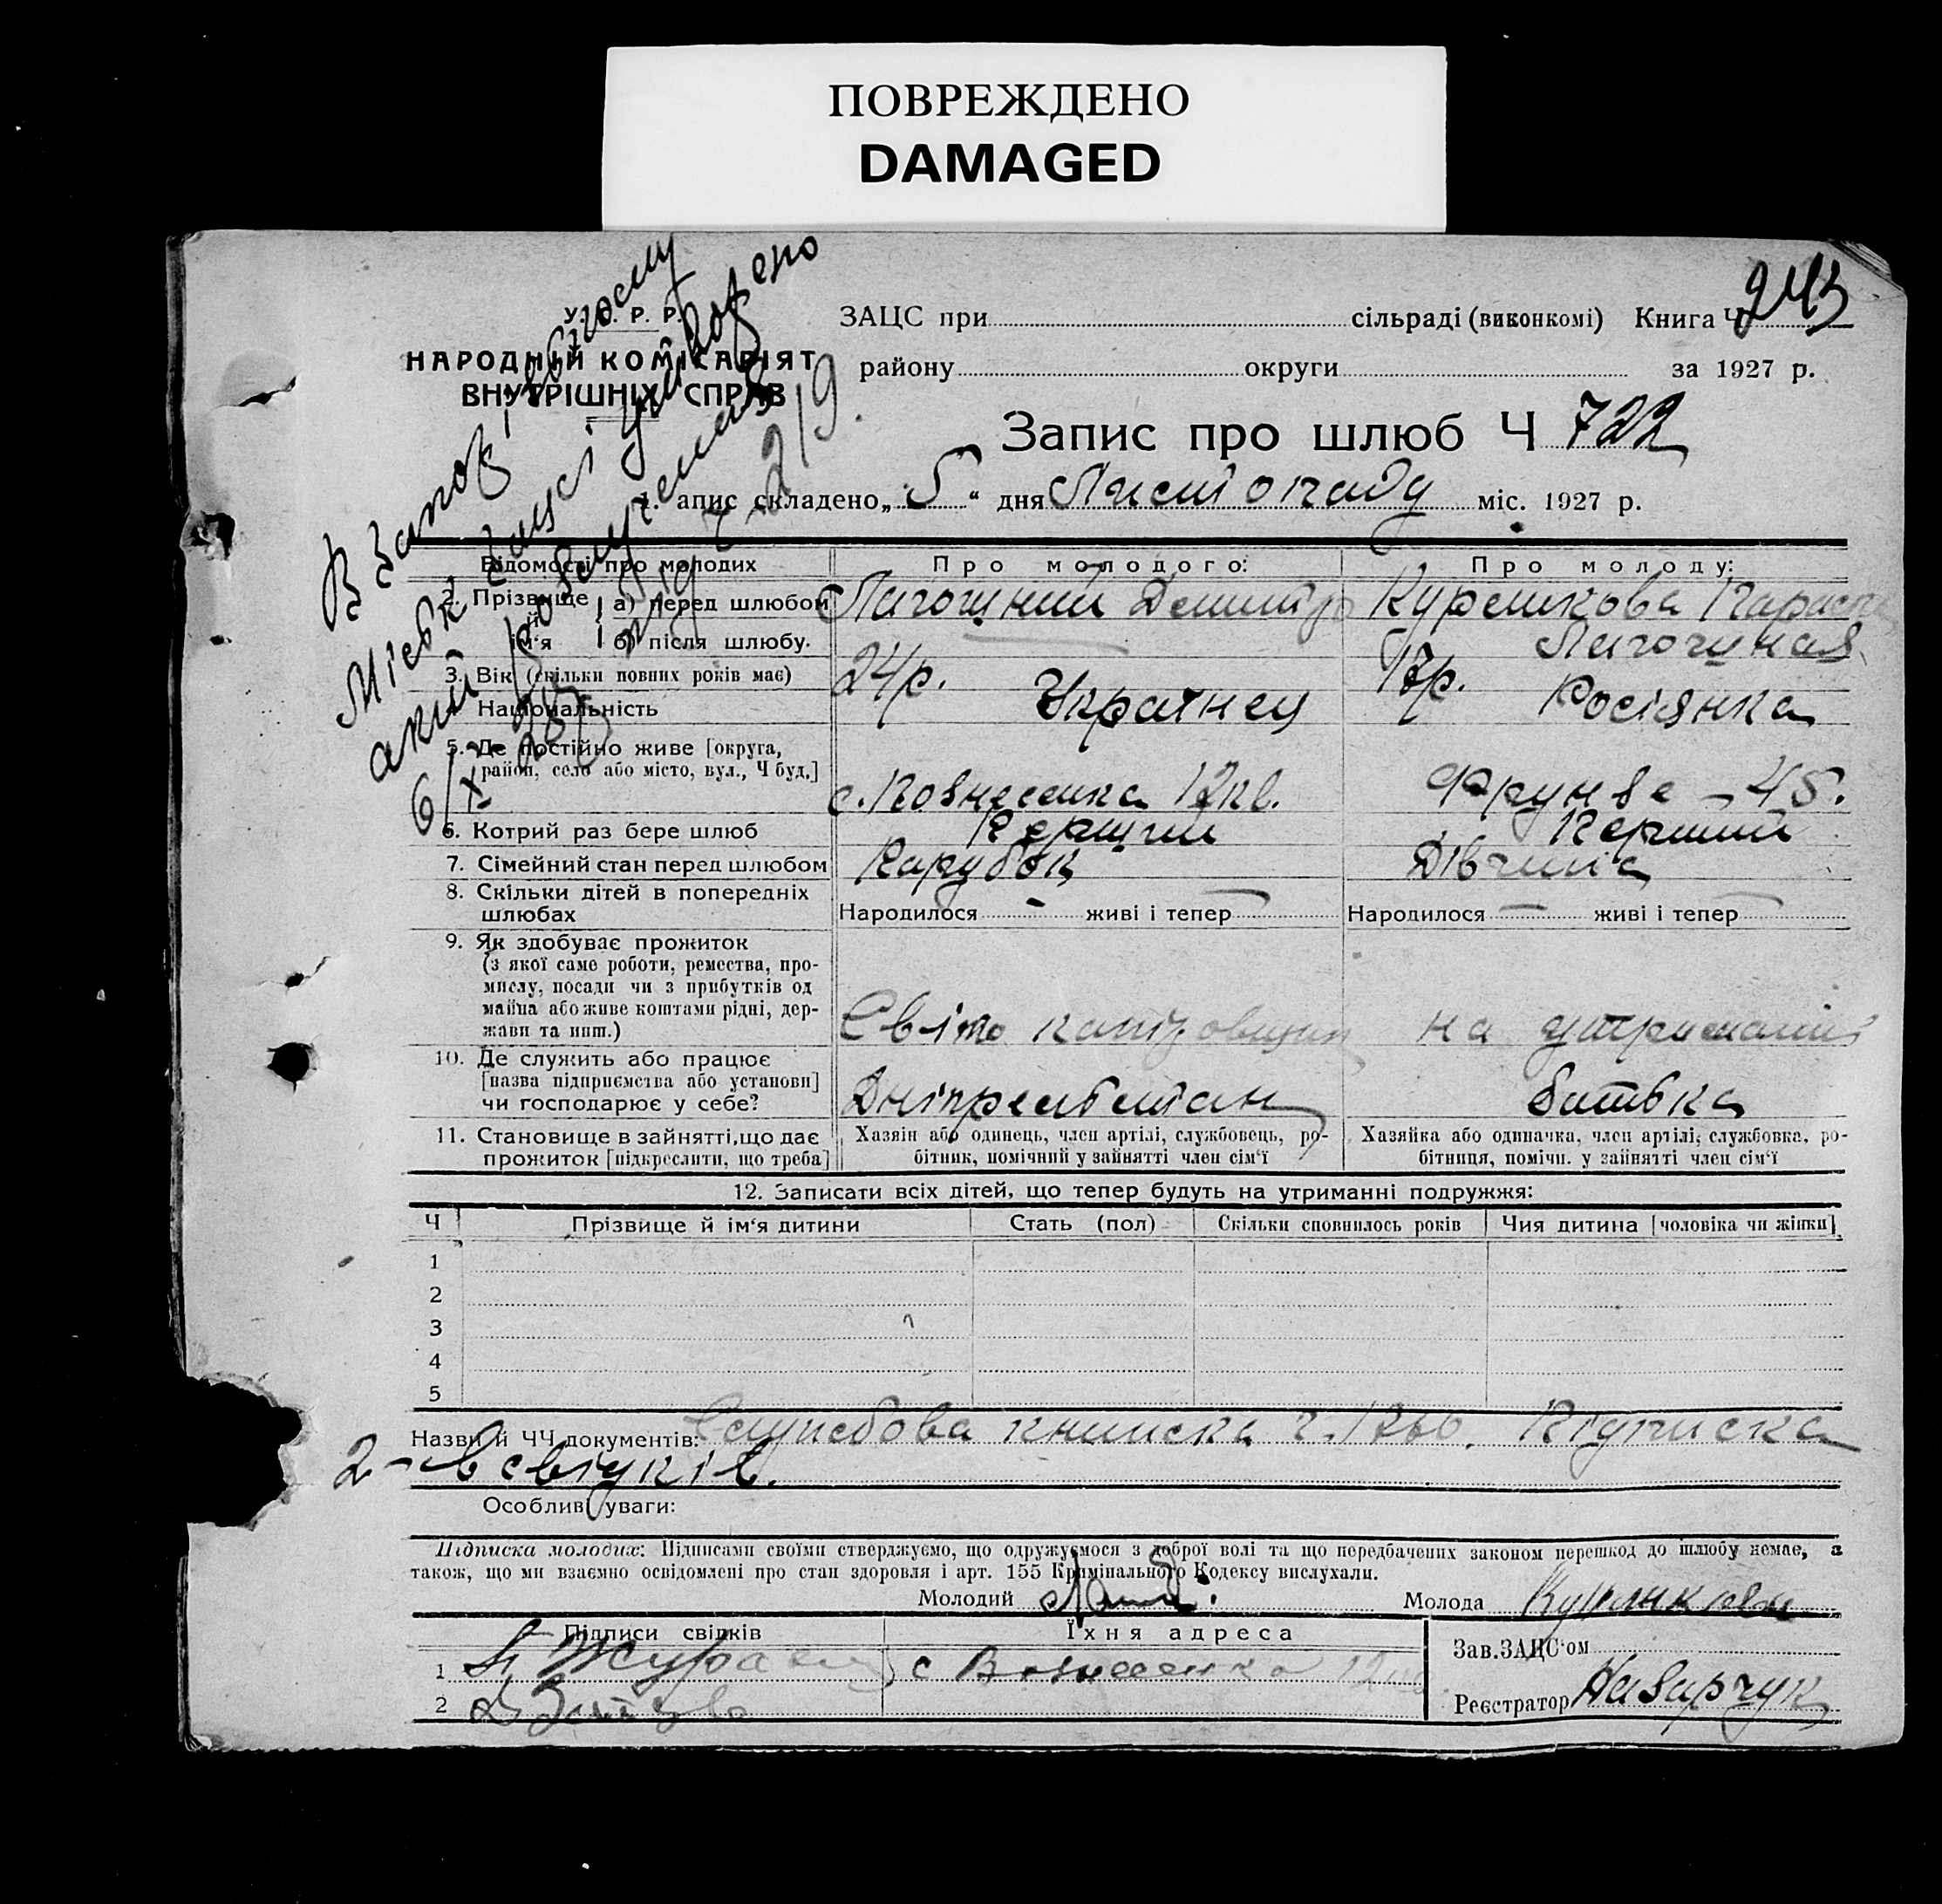 ПОВРЕЖДЕНО
DAMAGED
У. С. Р. Р.
НАРОДНІЙ КОМІСАРІЯТ
ВНУТРІШНІХ СПРАВ
ЗАЦС при сільраді (виконкомі) Книга Ч 243
району округи за 1927 р.
Запис про шлюб Ч 722
1. апис складено „5“ дня Листопаду міс. 1927 р.
Відомості про молодих Про молодого: Про молоду:
2. Прізвище й ім'я а) перед шлюбом
б) після шлюбу.
3. Вік (скільки повних років має) 24 р. 17 р.
Національність Українец Росіянка
5. Де постійно живе [округа, район, село або місто, вул., Ч буд.]
с. Вознесенка 12 кв. Фрунзе – 45.
6. Котрий раз бере шлюб Перший Перший
7. Сімейний стан перед шлюбом Парубок Дівчина
8. Скільки дітей в попередніх шлюбах
Народилося - живі і тепер - Народилося - живі і тепер -
9. Як здобуває прожиток
(з якої саме роботи, ремества, про-
мислу, посади чи з прибутків од
майна або живе коштами рідні, дер-
жави та инш.)
на утриманні
10. Де служить або працює
[назва підприємства або установи]
чи господарює у себе?
батька
11. Становище в зайнятті, що дає
прожиток [підкреслити, що треба]
Хазяін або одинець, член артілі, службовець, ро-
бітник, помічний у зайнятті член сім'ї
Хазяйка або одиначка, член артілі, службовка, ро-
бітниця, помічн. у зайнятті член сім'ї
12. Записати всіх дітей, що тепер будуть на утриманні подружжя:
Ч Прізвище й ім'я дитини Стать (пол) Скільки сповнилось років Чия дитина [чоловіка чи жінки]
1
2
3
4
5
Назви й ЧЧ документів: Службова книжка ч. Підписка
2-в свідків.
Особливі уваги:
Підписка молодих: Підписами своїми стверджуємо, що одружуємося з доброї волі та що передбачених законом перешкод до шлюбу немає, а
також, що ми взаємно освідомлені про стан здоровля і арт. 155 Кримінального Кодексу вислухали.
Молодий Молода
Підписи свідків Їхня адреса Зав. ЗАЦС'ом
1 с Вознесенка
2
Реєстратор Назарчук